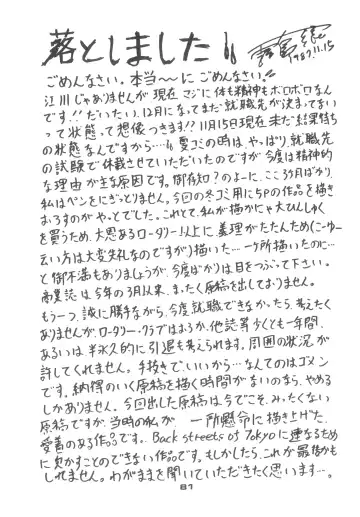 落としました
1987.11.15
ごめんなさい。本当〜〜にごめんなさい。
江川じゃありませんが現在マジに体も精神もボロボロなん
です!!だいたい、12月になってまだ就職先が決まってない
って状態って想像つきます!?11月15日現在未だ結果待ち
の状態なんですから…。夏コミの時は、やっぱり、就職先
の試験で休載させていただいたのですが今度は精神的
な理由が主な原因です。御存知?のよーに、ここ3ケ月ばかり、
私はペンをにぎっとりません。今回の冬コミ用に5Pの作品を描き
おろすのがやっとでした。これとて、私が描かにゃ大ひんしゅく
を買うため、大恩あるロータリー以上に義理がたたんため(こーゆー
云い方は大変失礼なのですが)描いた…一ヶ所描いたのに…
と御不満もありましょうが、今度ばかりは目をつぶって下さい。
商業誌は今年の3月以来、まったく原稿を出しておりません。
もう一つ、誠に勝手ながら、今度、就職できなかったら、考えたく
ありませんが、ロータリークラブではおろか、他誌等少くとも一年間、
あるいは半永久的に引退も考えられます。周囲の状況が
許してくれません。手抜きで、いいから…なんてのはゴメン
です。納得のいく原稿を描く時間がないのなら、やめる
しかありません。今回出した原稿は今でこそ、みったくない
原稿ですが、当時の私が 一所懸命に描き上げた、
愛着のある作品です。Back streets of Tokyoに連なるため
に欠かすことのできない作品です。もしかしたら、これが最後かも
しれません。わがままを聞いていただきたく思います…。
81